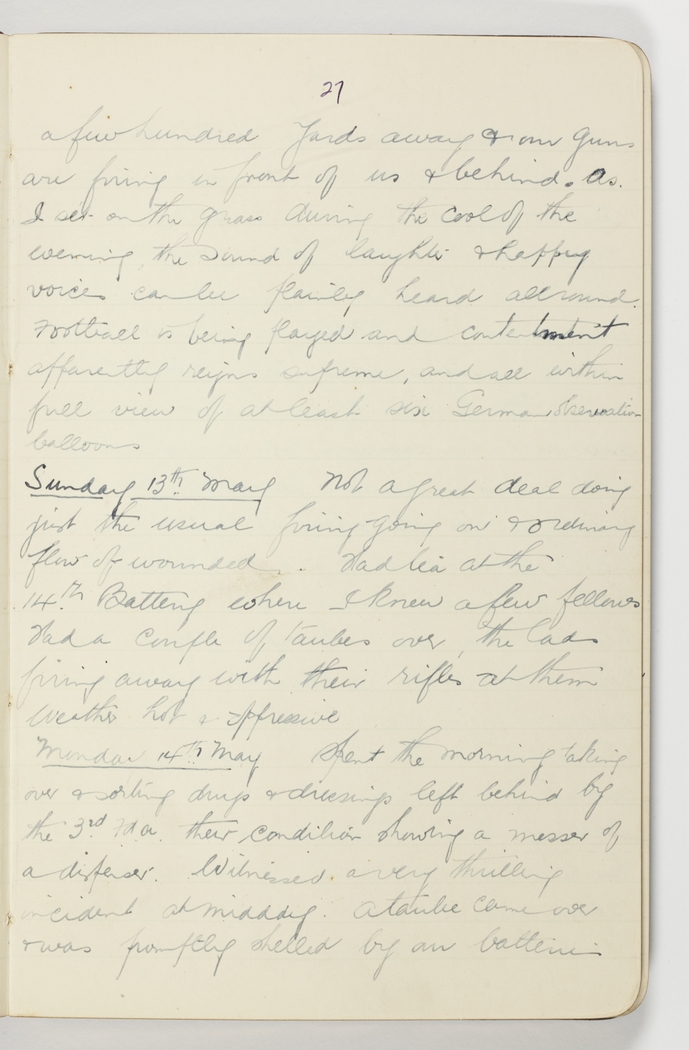 27
a few hundred yards away & our guns
are firing in front of us & behind. As
I set on the grass during the cool of the
evening, the sound of laughter & happy
voices can be plainly heard all round.
Football is being played and contentment
apparently reigns supreme, and all within
full view of at least six German observation
balloons
Sunday 13th May Not a great deal doing
just the usual firing going on & ordinary
flow of wounded. Had tea at the
14th Battery where I knew a few fellows
Had a couple of taubes over, the lads
firing away with their rifles at them
Weather hot & oppressive
Monday 14th May Spent the morning taking
over & sorting drugs & dressings left behind by
the 3rd Fd a. their condition showing a messer of
a dispenser. Witnessed a very thrilling
incident at midday. A taube came over
& was promptly shelled by our batteries